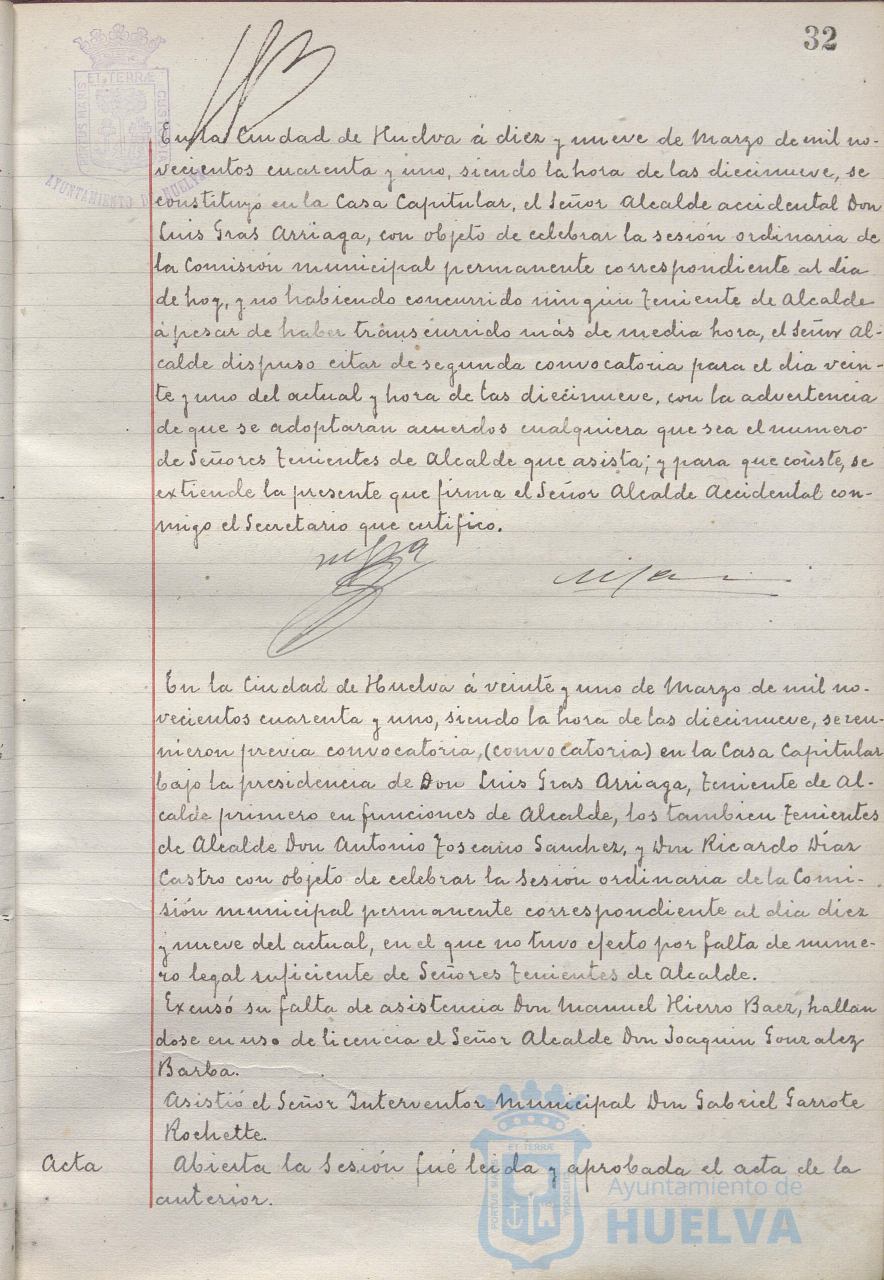 32
ET TERRÆ
PORTUS MARIS
CUSTODIA
AYUNTAMIENTO DE HUELVA
En la Ciudad de Huelva á diez y nueve de Marzo de mil no-
vecientos cuarenta y uno, siendo la hora de las diecinueve, se
constituyó en la Casa Capitular, el Señor Alcalde accidental Don
Luis Gras Arriaga, con objeto de celebrar la sesión ordinaria de
la Comisión municipal permanente correspondiente al dia
de hoy, y no habiendo concurrido ningún Teniente de Alcalde
á pesar de haber transcurrido más de media hora, el Señor Al-
calde dispuso citar de segunda convocatoria para el dia vein-
te y uno del actual y hora de las diecinueve, con la advertencia
de que se adoptarán acuerdos cualquiera que sea el numero
de Señores Tenientes de Alcalde que asista; y para que conste, se
extiende la presente que firma el Señor Alcalde Accidental con-
migo el Secretario que certifico.
En la Ciudad de Huelva á veinte y uno de Marzo de mil no-
vecientos cuarenta y uno, siendo la hora de las diecinueve, se reu-
nieron previa convocatoria, (convocatoria) en la Casa Capitular
bajo la presidencia de Don Luis Gras Arriaga, Teniente de Al-
calde primero en funciones de Alcalde, los tambien Tenientes
de Alcalde Don Antonio Toscano Sanchez, y Don Ricardo Díaz
Castro con objeto de celebrar la Sesión ordinaria de la Comi-
sión municipal permanente correspondiente al dia diez
y nueve del actual, en el que no tuvo efecto por falta de nume-
ro legal suficiente de Señores Tenientes de Alcalde.
Excusó su falta de asistencia Don Manuel Hierro Baez, hallan
dose en uso de licencia el Señor Alcalde Don Joaquin Gonzalez
Barba.
Asistió el Señor Interventor Municipal Don Gabriel Garrote
Rochette.
Acta Abierta la Sesión fué leida y aprobada el acta de la
anterior.
ET TERRÆ
PORTUS MARIS
CUSTODIA
Ayuntamiento de
HUELVA